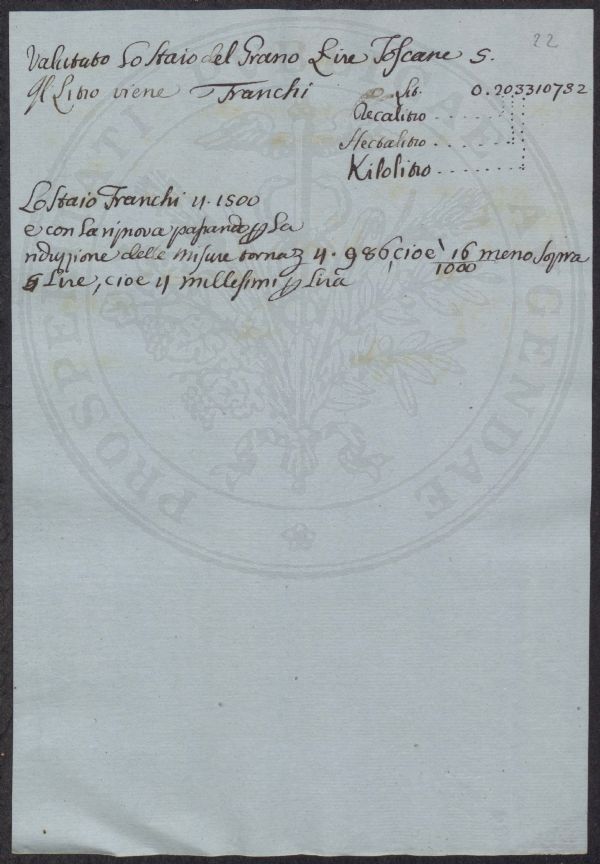 22
Valutato Lo Staio del Grano Lire Toscane 5.
Il Litro viene Franchi Lit. 0.203310732
Decalitro . . . . . . .
Hectolitro . . . . . . . .
Kilolitro . . . . . . . .
Lo Staio Franchi 4.1500
e con La riprova passando p La
riduzione delle misure torna 4.986, cioè 16/1000 meno sopra
5 Lire, cioe 4 millesimi p Lira
PROSPERITATI PUBLICAE AUGENDAE